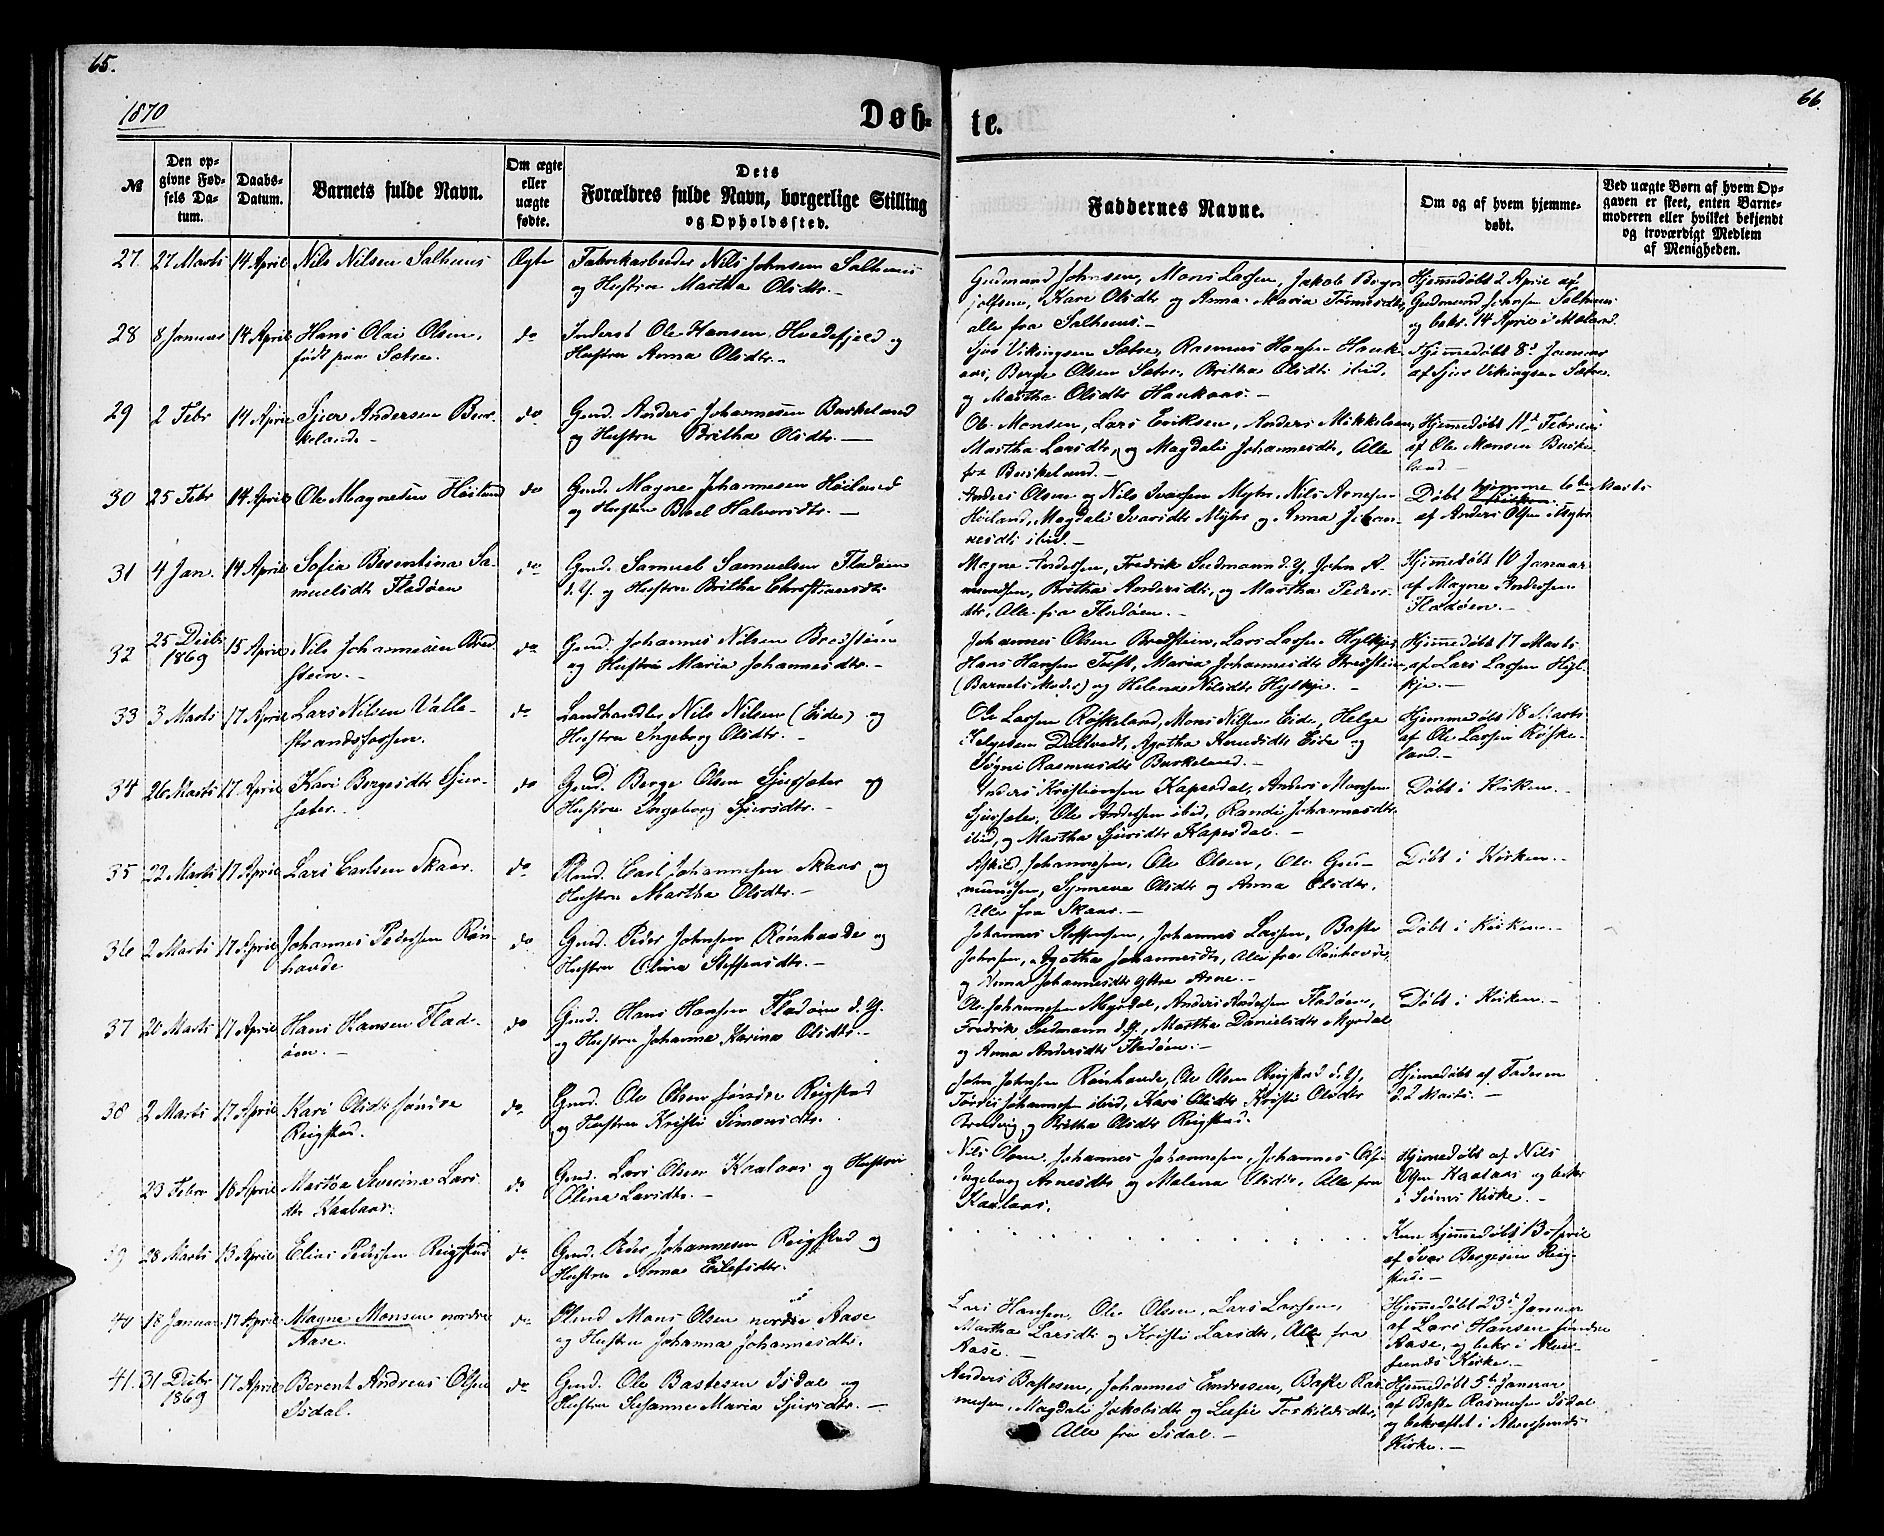 65.
66.
1870
Døb-
te.
№
Den op-
givne Fød-
sels Da-
tum.
Daabs-
Datum.
Barnets fulde Navn.
Om ægte
eller
uægte
fødte.
Dets
Forældres fulde Navn, borgerlige Stilling
og Opholdssted.
Faddernes Navne.
Om og af hvem hjemme-
døbt.
Ved uægte Børn af hvem Op-
gaven er skeet, enten Barne-
moderen eller hvilket bekjendt
og troværdigt Medlem
af Menigheden.
27. 27 Marts 14 April Nils Nilsen Salhuus Ægte Fabrikarbeider Nils Johnsen Salhuus
og Hustru Martha Olsdtr.-
Gudmund Johnsen, Mons Larsen, Jakob
Kari Olsdtr og Anna Maria
alle fra Salhuus.-
Hjemmedøbt 2 April af
Gudmund Johnsen Salhuus
og bekr. 14 April i
28 8 Januar 14 April Hans Olai Olsen, do Inderst Ole Hansen Hvedefjeld og
født paa Sætre. Hustru Anna Olsdtr.-
Sjur Vikingsen Sætre, Rasmus Hansen Hauk-
aas, Berge Olsen Sætre, Britha Olsdtr ibid,
og Martha Olsdtr Haukaas.-
Hjemmedøbt 8d Januar
af Sjur Vikingsen Sætre.
29 2 Febr 14 April Sjur Andersen Bur- do Gmd. Anders Johannesen Burkeland
keland.- og Hustru Britha Olsdtr.-
Ole Monsen, Lars Eriksen, Anders Mikkelsen,
Martha Larsdtr, og Magdali Johannesdtr, Alle
fra Burkeland.-
Hjemmedøbt 11d Februar
af Ole Monsen Burke-
land.-
30 25 Febr 14 April Ole Magnesen Høiland do Gmd. Magne Johannesen Høiland
og Hustru Boel Halvorsdtr.-
Anders Olsen og Nils Ivarsen Myhr, Nils Arnesen
Høiland, Magdali Ivarsdtr Myhr og Anna Johan-
nesdtr ibid.-
Døbt hjemme 6te Marts
af Anders Olsen Myhr.
31 4 Jan. 14 April Sofia Berentina Sa- do Gmd. Samuel Samuelsen Fladøen
muelsdt Fladøen d.Y. og Hustru Britha Christiansdtr
Magne Andersen, Fredrik Sudmann d.Y, John A-
mundsen, Britha Andersdtr, og Martha Peders-
dtr, Alle fra Fladøen.-
Hjemmedøbt 10 Januar
af Magne Andersen
Fladøen.-
32 25 Decbr
1869 15 April Nils Johannesen Bred- do Gmd. Johannes Nilsen Bredstein
stein.- og Hustru Maria Johannesdtr.-
Johannes Olsen Bredstein, Lars Larsen Hylkje,
Hans Hansen Tuft, Maria Johannesdtr Bredstein
(Barnets Moder) og Helena Nilsdtr Hylkje.-
Hjemmedøbt 17 Marts
af Lars Larsen Hyl-
kje.-
33 3 Marts 17 April Lars Nilsen Valle- do Landhandler Nils Nilsen (Eide) og
strandsfossen. Hustru Ingeborg Olsdtr.-
Ole Larsen Røskeland, Mons Nilsen Eide, Helge
Helgesen Daltvedt, Agatha Knudsdtr Eide og
Søgni Rasmusdtr Burkeland.-
Hjemmedøbt 18 Marts
af Ole Larsen Røske-
land.-
34 26 Marts 17 April Kari Bergesdtr Sjur- do Gmd. Berge Olsen Sjursæter og
sæter. Hustru Ingeborg Sjursdtr.-
Anders Kristiansen Kapesdal, Anders Monsen
Sjursæter, Ole Andersen ibid, Randi Johannesdtr
ibid, og Martha Sjursdtr Kapesdal.-
Døbt i Kirken.-
35 22 Marts 17 April Lars Carlsen Skaar. do Carl Johannesen Skaar og
Hustru Martha Olsdtr.-
Askild Johannesen, Ole Olsen, Ole Gud-
mundsen, Synneva Olsdtr og Anna Olsdtr,
Alle fra Skaar.-
Døbt i Kirken.-
36 2 Marts 17 April Johannes Pedersen Røn- do Gmd. Peder Johnsen Rønhovde og
hovde Hustru Olina Steffensdtr.-
Johannes Steffensen, Johannes Larsen, Baste
Johnsen, Agatha Johannesdtr, Alle fra Rønhovde,
og Anna Johannesdtr Yttre Arne.-
Døbt i Kirken.-
37 20 Marts 17 April Hans Hansen Flad- do Gmd. Hans Hansen Fladøen d.Y.
øen.- og Hustru Johanna Karina Olsdtr.-
Ole Johannesen Myrdal, Anders Andersen Fladøen,
Fredrik Sudmann d.Y., Martha Danielsdtr Myrdal
og Anna Andersdtr Fladøen.-
Døbt i Kirken.-
38 2 Marts 17 April Kari Olsdtr søndre do Gmd. Ole Olsen søndre Reigstad
Reigstad. og Hustru Kristi Simonsdtr.
John Johnsen Rønhovde, Ole Olsen Reigstad d.Y,
Johannesen ibid, Kari Olsdtr, Kristi Olsdtr
og Britha Olsdtr Reigstad.
Hjemmedøbt af Faderen
d 2 Marts.-
23 Febr 18 April Martha Severina Lars- do Gmd. Lars Olsen Kaalaas og Hustru
dtr Kaalaas. Olina Larsdtr.-
Nils Olsen, Johannes Johannesen, Johannes Olsen
Ingeborg Arnesdtr og Malena Olsdtr, Alle fra
Kaalaas.
Hjemmedøbt af Nils
Olsen Kaalaas og bekr
i Kirke.-
39 28 Marts 13 April Elias Pedersen Reigstad do Gmd. Peder Johannesen Reigstad og
Hustru Anna Eilefsdtr.
Kun hjemmedøbt 13 April
af Ivar Bergesen Reig-
stad.-
40 18 Januar 17 April Magne Monsen nordre do Mons Olsen nordre Aase
Aase. og Hustru Johanna Johannesdtr.
Lars Hansen, Ole Olsen, Lars Larsen,
Martha Larsdtr og Kristi Larsdtr, Alle fra
Aase.-
Hjemmedøbt 23d Januar
af Lars Hansen søndre
Aase, og bekr i Alver-
sunds Kirke.-
41. 31 Decbr
1869 17 April Berent Andreas Olsen do Gmd. Ole Bastesen Isdal og
Isdal. Hustru Susanne Maria Sjursdtr.-
Anders Bastesen, Johannes Endresen, Baste Ras-
musen, Magdali Jakobsdtr og Lisie Torkildsdtr,
Alle fra Isdal.-
Hjemmedøbt 5te Januar
af Baste Rasmusen Isdal
og bekræftet i Alversunds
Kirke.-